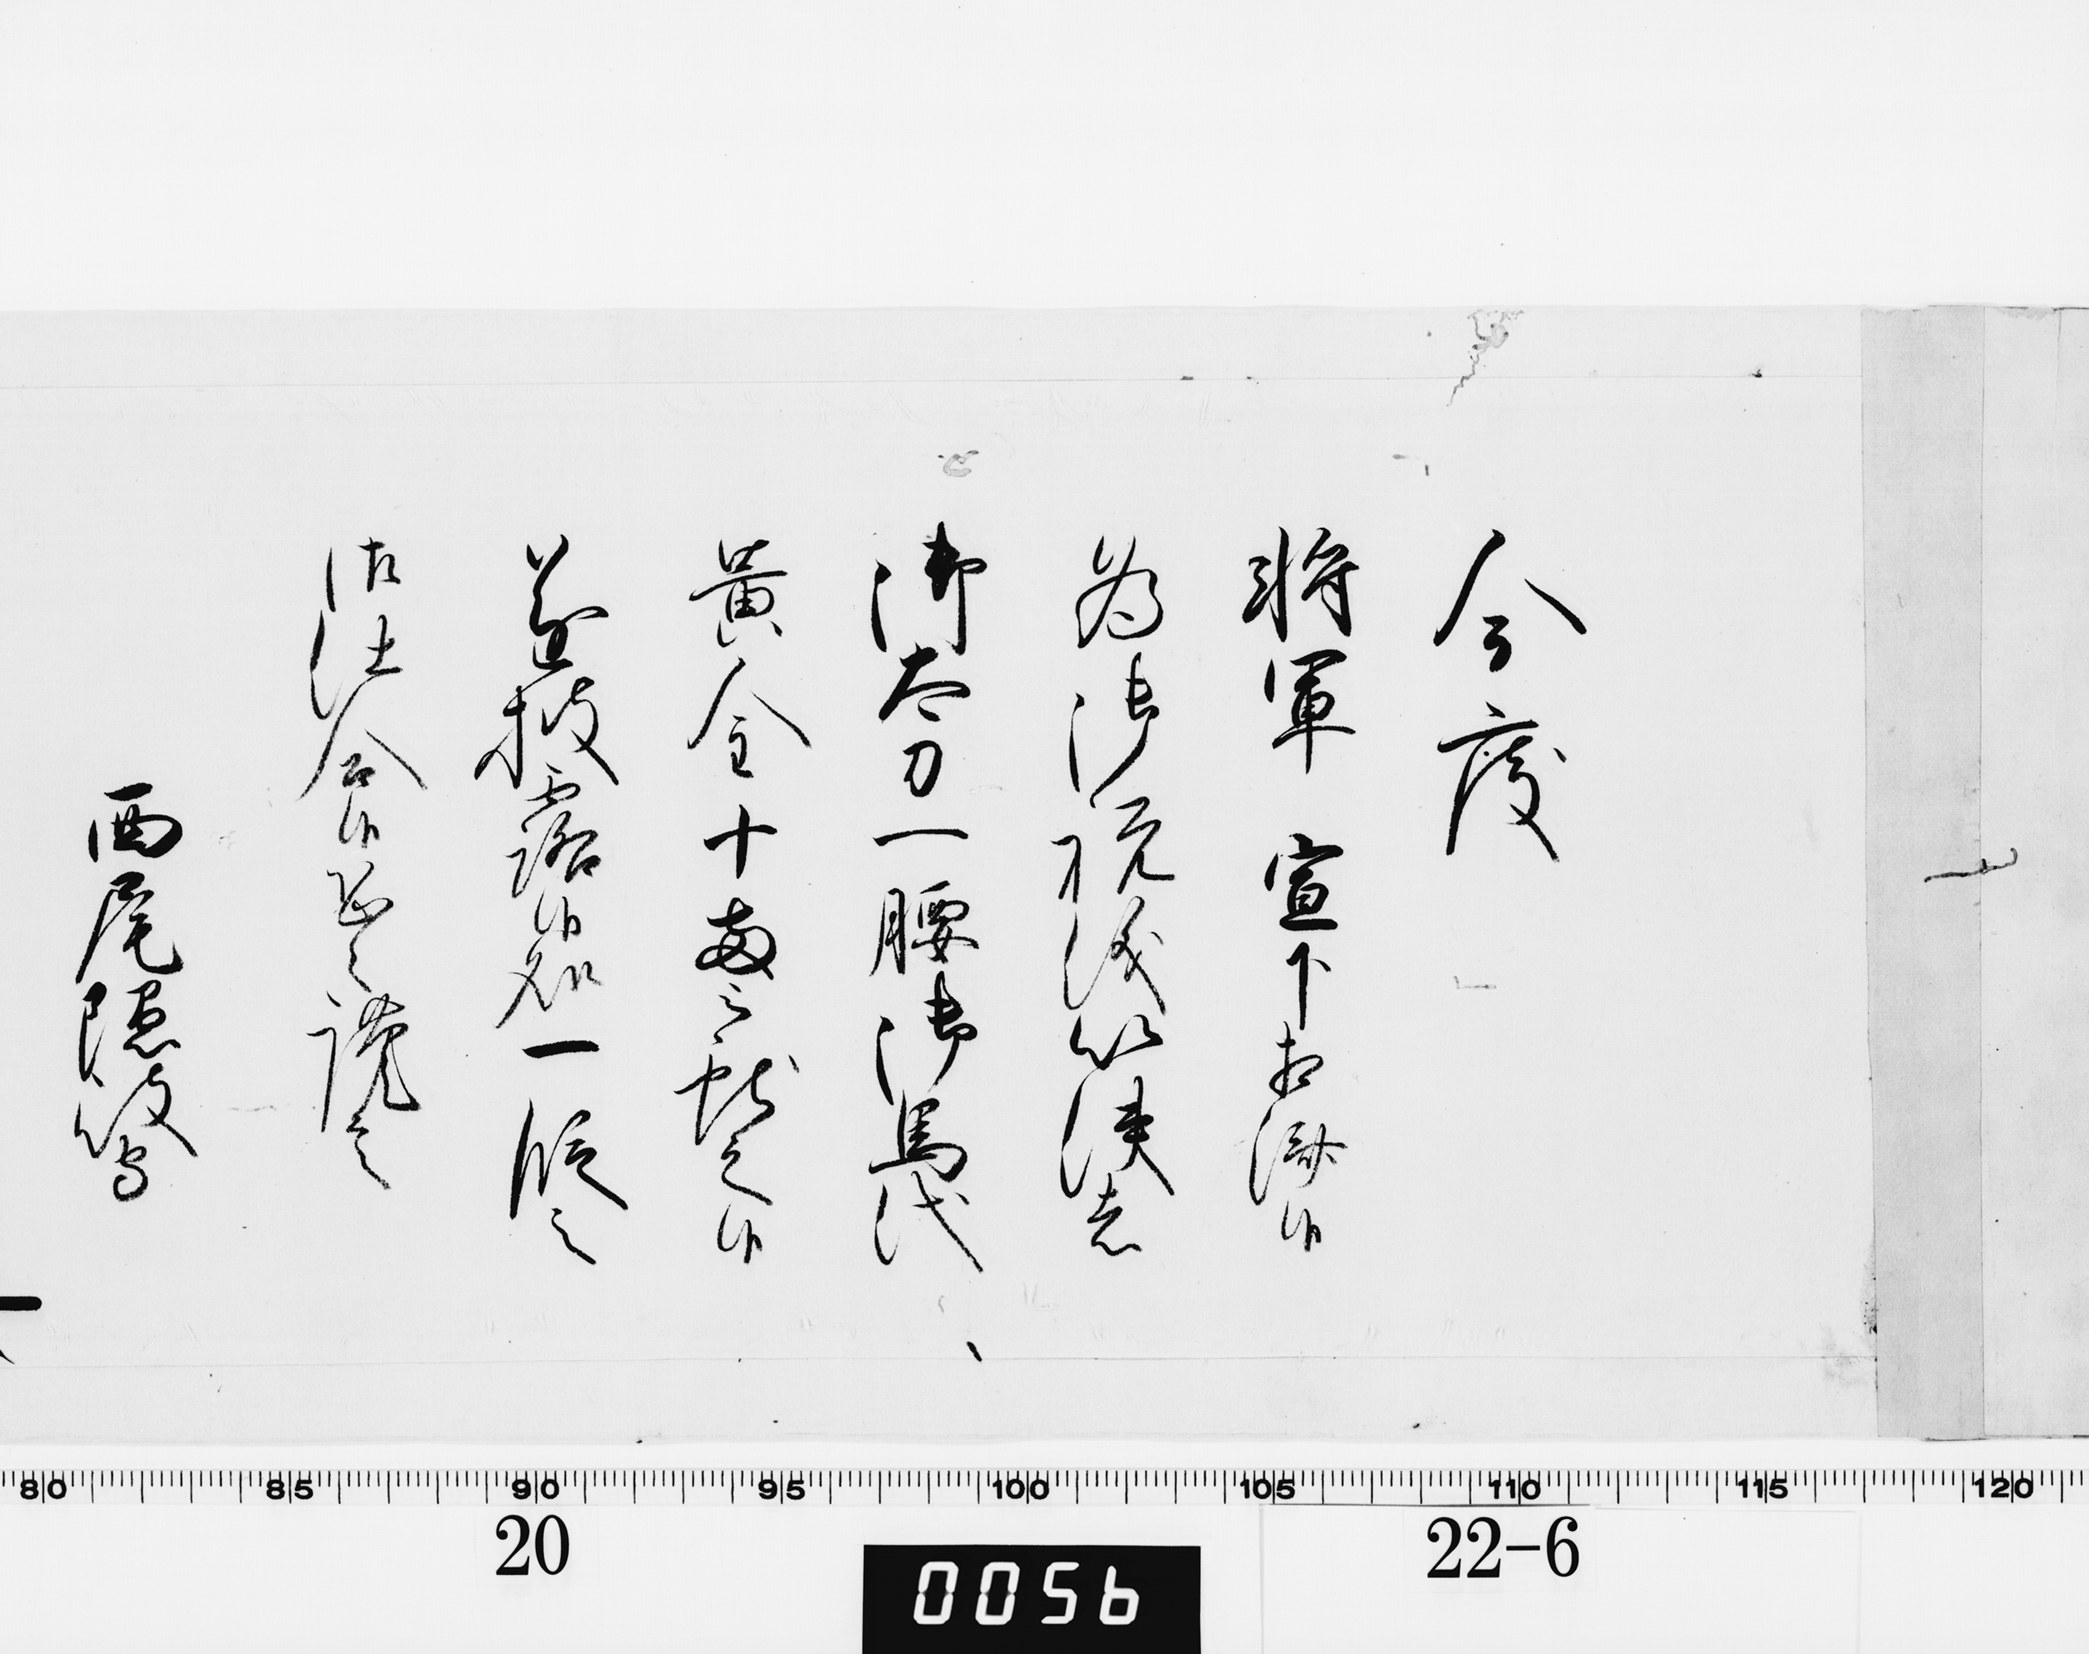 今度
将軍　宣下相済候
為御祝儀以使者
御太刀一腰御馬代
黄金十両被献之候
遂披露候処一段之
御仕合候恐々謹言
西尾隠岐守
80 85 90 95 100 105 110 115 120
20
22-6
0056